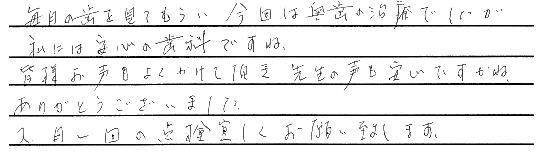 毎月の歯を見てもらい 今回は奥歯の治療でしたが
私には安心の歯科ですね。
皆様お声もよくかけて頂き 先生の声も安心ですがね
ありがとうございました。
又月一回の点検宜しくお願い致します。